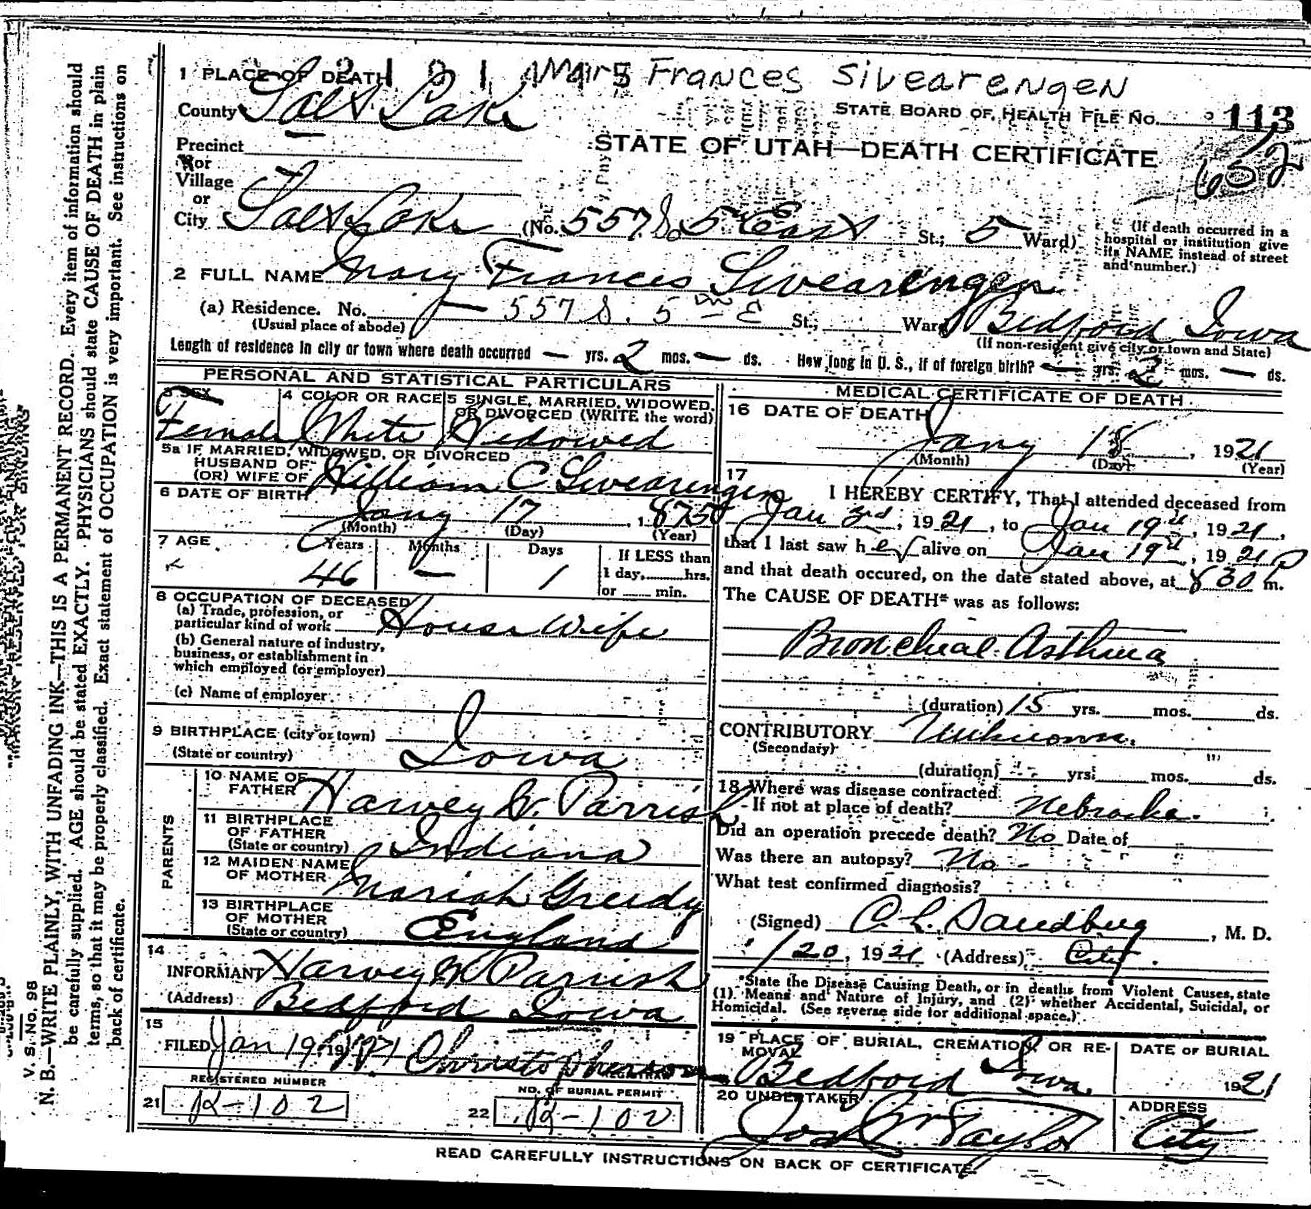 Mary Frances Sivearengen
1 PLACE OF DEATH
County Salt Lake
STATE BOARD OF HEALTH FILE NO. 113
652
STATE OF UTAH—DEATH CERTIFICATE
Precinct
or
Village
or
City Salt Lake (No. 557 So 5 East St.; 5 Ward)
(If death occurred in a hospital or institution give its NAME instead of street and number.)
2 FULL NAME Mary Frances Swearengen
(a) Residence. No. 557 S. 5th E St.; Ward Bedford Iowa
(Usual place of abode) (If non-resident give city or town and State)
Length of residence in city or town where death occurred — yrs. 2 mos. — ds. How long in U. S., if of foreign birth? — yrs. 2 mos. — ds.
PERSONAL AND STATISTICAL PARTICULARS
SEX Female
4 COLOR OR RACE White
5 SINGLE, MARRIED, WIDOWED, OR DIVORCED (WRITE the word) Widowed
5a IF MARRIED, WIDOWED, OR DIVORCED
HUSBAND OF
(OR) WIFE OF William C Swearengen
6 DATE OF BIRTH Jany 17, 1875
(Month) (Day) (Year)
7 AGE Years Months Days If LESS than
46 — 1 1 day, hrs.
or min.
8 OCCUPATION OF DECEASED
(a) Trade, profession, or
particular kind of work House Wife
(b) General nature of industry,
business, or establishment in
which employed (or employer)
(c) Name of employer
9 BIRTHPLACE (city or town)
(State or country) Iowa
PARENTS
10 NAME OF FATHER Harvey W. Parrish
11 BIRTHPLACE OF FATHER
(State or country) Indiana
12 MAIDEN NAME OF MOTHER Mariah Greedy
13 BIRTHPLACE OF MOTHER
(State or country) England
14
INFORMANT Harvey W Parrish
(Address) Bedford Iowa
15
FILED Jan 19 1921 Christopherson
REGISTRAR
REGISTERED NUMBER
21 R-102
NO. OF BURIAL PERMIT
22 R-102
MEDICAL CERTIFICATE OF DEATH
16 DATE OF DEATH
Jany 18, 1921
(Month) (Day) (Year)
17
I HEREBY CERTIFY, That I attended deceased from
Jan 3rd, 1921, to Jan 19th, 1921,
that I last saw her alive on Jan 19th, 1921
and that death occured, on the date stated above, at 830 P m.
The CAUSE OF DEATH* was as follows:
Bronchial Asthma
(duration) 15 yrs. mos. ds.
CONTRIBUTORY Unknown.
(Secondary)
(duration) yrs. mos. ds.
18 Where was disease contracted
If not at place of death? Nebraska.
Did an operation precede death? No Date of
Was there an autopsy? No
What test confirmed diagnosis?
(Signed) C. L. Sandberg, M. D.
1/20, 1921 (Address) City.
*State the Disease Causing Death, or in deaths from Violent Causes, state
(1) Means and Nature of Injury, and (2) whether Accidental, Suicidal, or
Homicidal. (See reverse side for additional space.)
19 PLACE OF BURIAL, CREMATION, OR REMOVAL
Bedford Iowa
DATE OF BURIAL
1921
20 UNDERTAKER
Jos Wm Taylor
ADDRESS
City
READ CAREFULLY INSTRUCTIONS ON BACK OF CERTIFICATE.
V. S. No. 98
N. B.—WRITE PLAINLY, WITH UNFADING INK—THIS IS A PERMANENT RECORD. Every item of information should
be carefully supplied. AGE should be stated EXACTLY. PHYSICIANS should state CAUSE OF DEATH in plain
terms, so that it may be properly classified. Exact statement of OCCUPATION is very important. See instructions on
back of certificate.